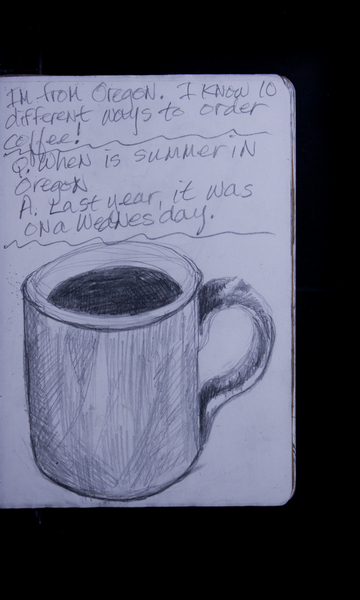 I'm from Oregon. I know 10
different ways to order
coffee!
Q. When is summer in
Oregon
A. Last year, it was
on a Wednesday.